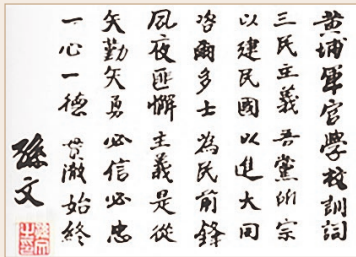 黄埔軍官學校訓詞
三民主義吾黨所宗
以建民國以進大同
咨爾多士為民前鋒
夙夜匪懈主義是從
矢勤矢勇必信必忠
一心一德貫徹始終
孫文